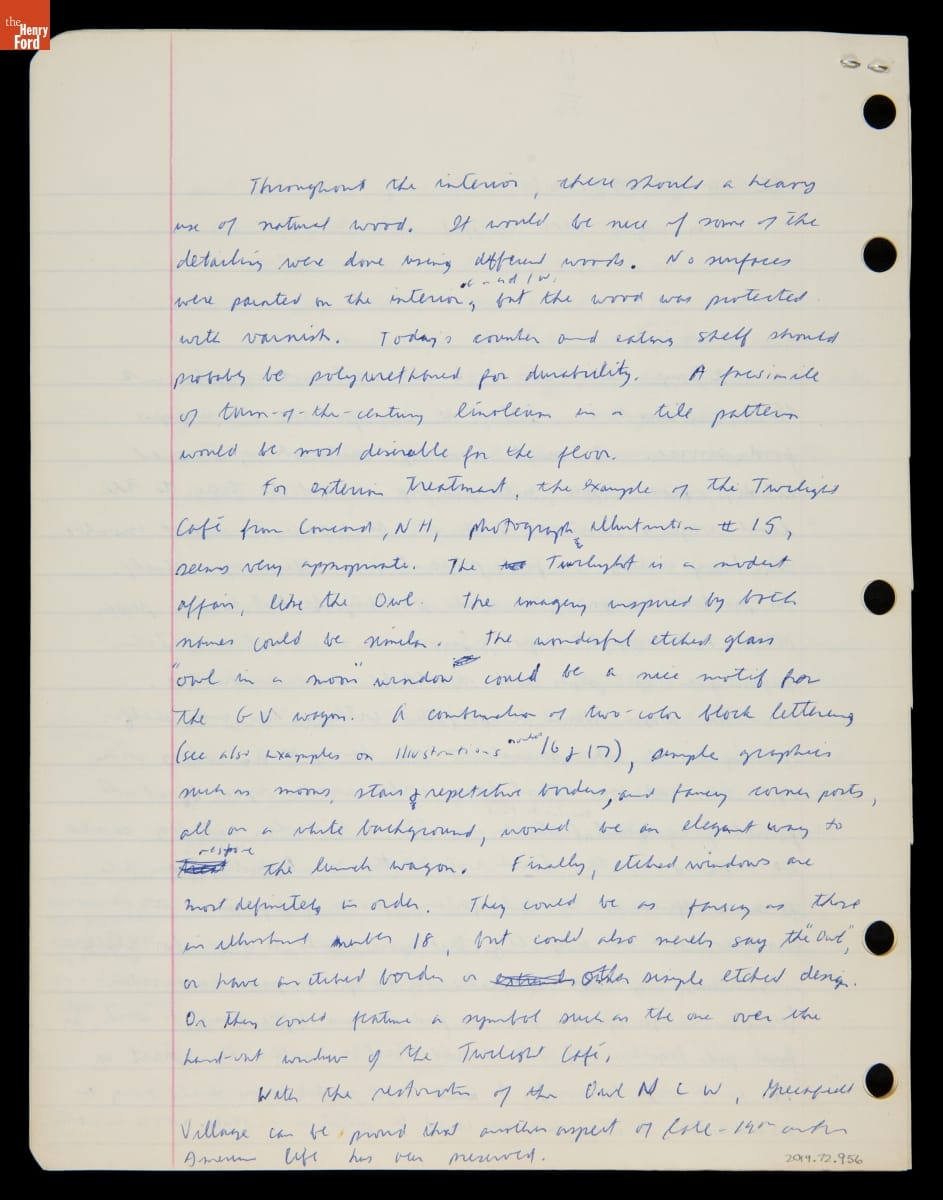 the
Henry
Ford
Throughout the interior, there should a heavy
use of natural wood. It would be nice if some of the
detailing were done using different woods. No surfaces
were painted on the interior, but the wood was protected
with varnish. Today's counter and eating shelf should
probably be polyurethaned for durability. A facsimile
of turn-of-the-century linoleum in a tile pattern
would be most desirable for the floor.
For exterior treatment, the example of the Twilight
Café from Concord, NH, photograph illustration # 15,
seems very appropriate. The Twilight is a modest
affair, like the Owl. The imagery inspired by both
names could be similar. The wonderful etched glass
"owl in a moon" window could be a nice motif for
the GV wagon. A combination of two-color block lettering
(see also examples on illustrations 16 & 17), simple graphics
such as moons, stars & repetitive borders, and fancy corner posts,
all on a white background, would be an elegant way to
restore
the lunch wagon. Finally, etched windows are
most definitely in order. They could be as fancy as those
in number 18, but could also merely say the "Owl",
or have an etched border or other simple etched design.
Or they could feature a symbol such as the one over the
hand-out window of the Twilight Café.
With the restoration of the Owl N L W, Greenfield
Village can be proud that another aspect of late-19th century
American life has been preserved.
2019.72.956